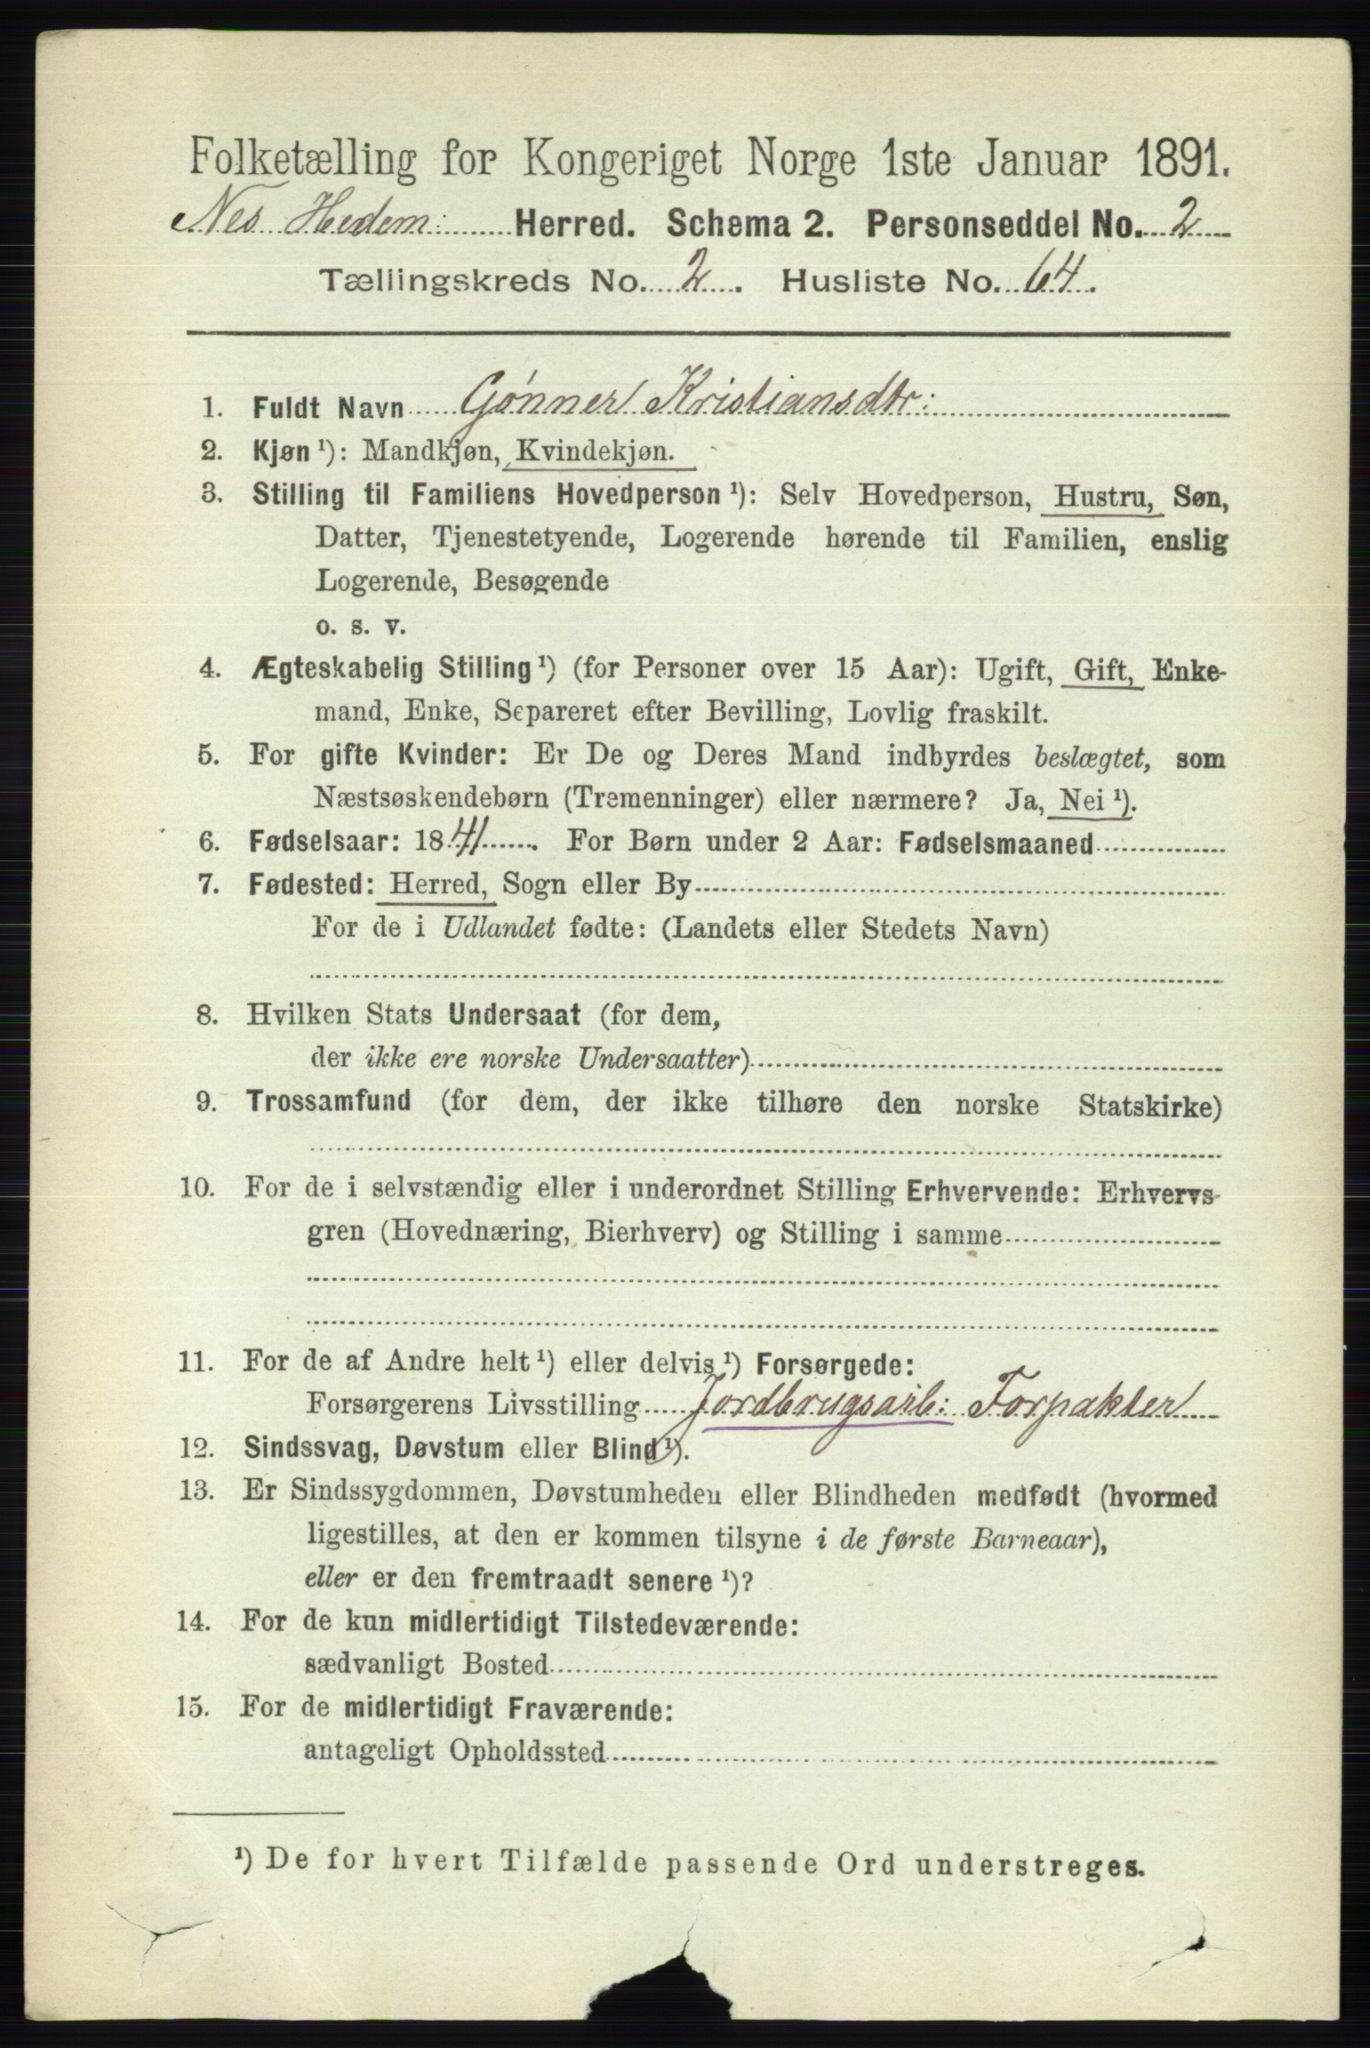 Folketælling for Kongeriget Norge 1ste Januar 1891.
Nes Hedem: Herred. Schema 2. Personseddel No. 2
Tællingskreds No. 2. Husliste No. 64.
1. Fuldt Navn Gønner Kristiansdtr:
2. Kjøn ¹): Mandkjøn, Kvindekjøn.
3. Stilling til Familiens Hovedperson ¹): Selv Hovedperson, Hustru, Søn,
Datter, Tjenestetyende, Logerende hørende til Familien, enslig
Logerende, Besøgende
o. s. v.
4. Ægteskabelig Stilling ¹) (for Personer over 15 Aar): Ugift, Gift, Enke-
mand, Enke, Separeret efter Bevilling, Lovlig fraskilt.
5. For gifte Kvinder: Er De og Deres Mand indbyrdes beslægtet, som
Næstsøskendebørn (Tremenninger) eller nærmere? Ja, Nei ¹).
6. Fødselsaar: 1841. For Børn under 2 Aar: Fødselsmaaned
7. Fødested: Herred, Sogn eller By
For de i Udlandet fødte: (Landets eller Stedets Navn)
8. Hvilken Stats Undersaat (for dem,
der ikke ere norske Undersaatter)
9. Trossamfund (for dem, der ikke tilhøre den norske Statskirke)
10. For de i selvstændig eller i underordnet Stilling Erhvervende: Erhvervs-
gren (Hovednæring, Bierhverv) og Stilling i samme
11. For de af Andre helt ¹) eller delvis ¹) Forsørgede:
Forsørgerens Livsstilling Jordbrugsarb: Forpakter
12. Sindssvag, Døvstum eller Blind ¹).
13. Er Sindssygdommen, Døvstumheden eller Blindheden medfødt (hvormed
ligestilles, at den er kommen tilsyne i de første Barneaar),
eller er den fremtraadt senere ¹)?
14. For de kun midlertidigt Tilstedeværende:
sædvanligt Bosted
15. For de midlertidigt Fraværende:
antageligt Opholdssted
¹) De for hvert Tilfælde passende Ord understreges.